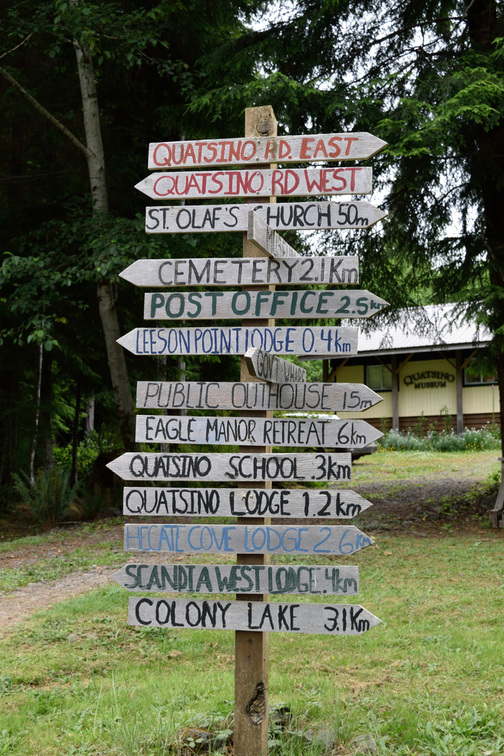 QUATSINO. RD. EAST
QUATSINO RD WEST
ST. OLAF'S CHURCH 50m
CEMETERY 2.1Km
POST OFFICE 2.5k
LEESON POINT LODGE 0.4km
GOV'T WHARF
PUBLIC OUTHOUSE 15m
EAGLE MANOR RETREAT .6Km
QUATSINO SCHOOL .3km
QUATSINO LODGE 1.2km
HECATE COVE LODGE 2.6km
SCANDIA WEST LODGE .4km
COLONY LAKE 3.1Km
QUATSINO
MUSEUM